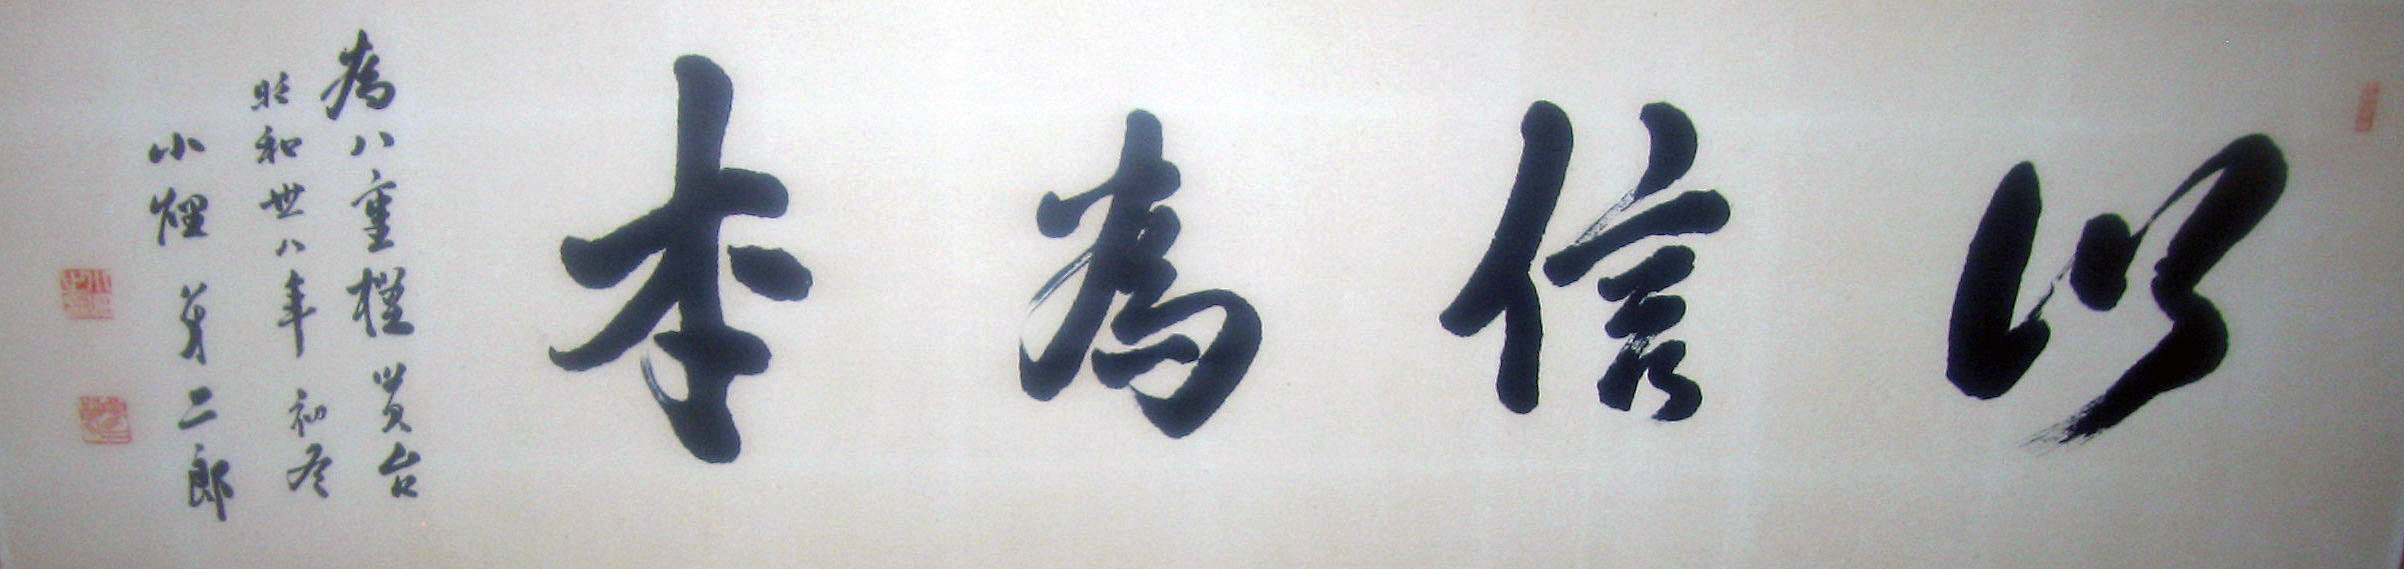 以信為本
為八重樫賢台
昭和卅八年 初冬
小煙 芽二郎